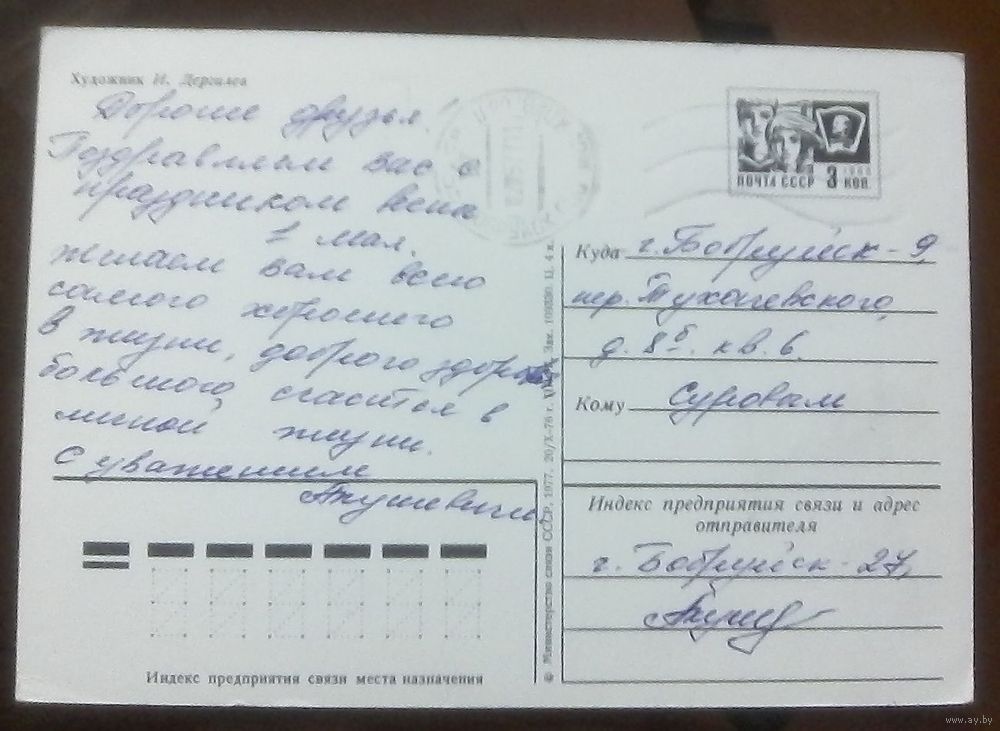 Художник И. Дергилев
Дорогие друзья!
Поздравляем вас с
праздником весны
1 мая.
желаем вам всего
самого хорошего
в жизни, доброго здоров
большого счастья в
личной жизни.
С уважением
Якушевичи
ПОЧТА СССР 3 КОП.
1968
Куда г. Бобруйск-9,
пер. Тухачевского,
д. 8б. кв. 6.
Кому Суровым
Индекс предприятия связи и адрес
отправителя
г. Бобруйск-27,
© Министерство связи СССР, 1977. 20/X-76 г. Зак. Ц. 4 к.
Индекс предприятия связи места назначения
www.ay.by